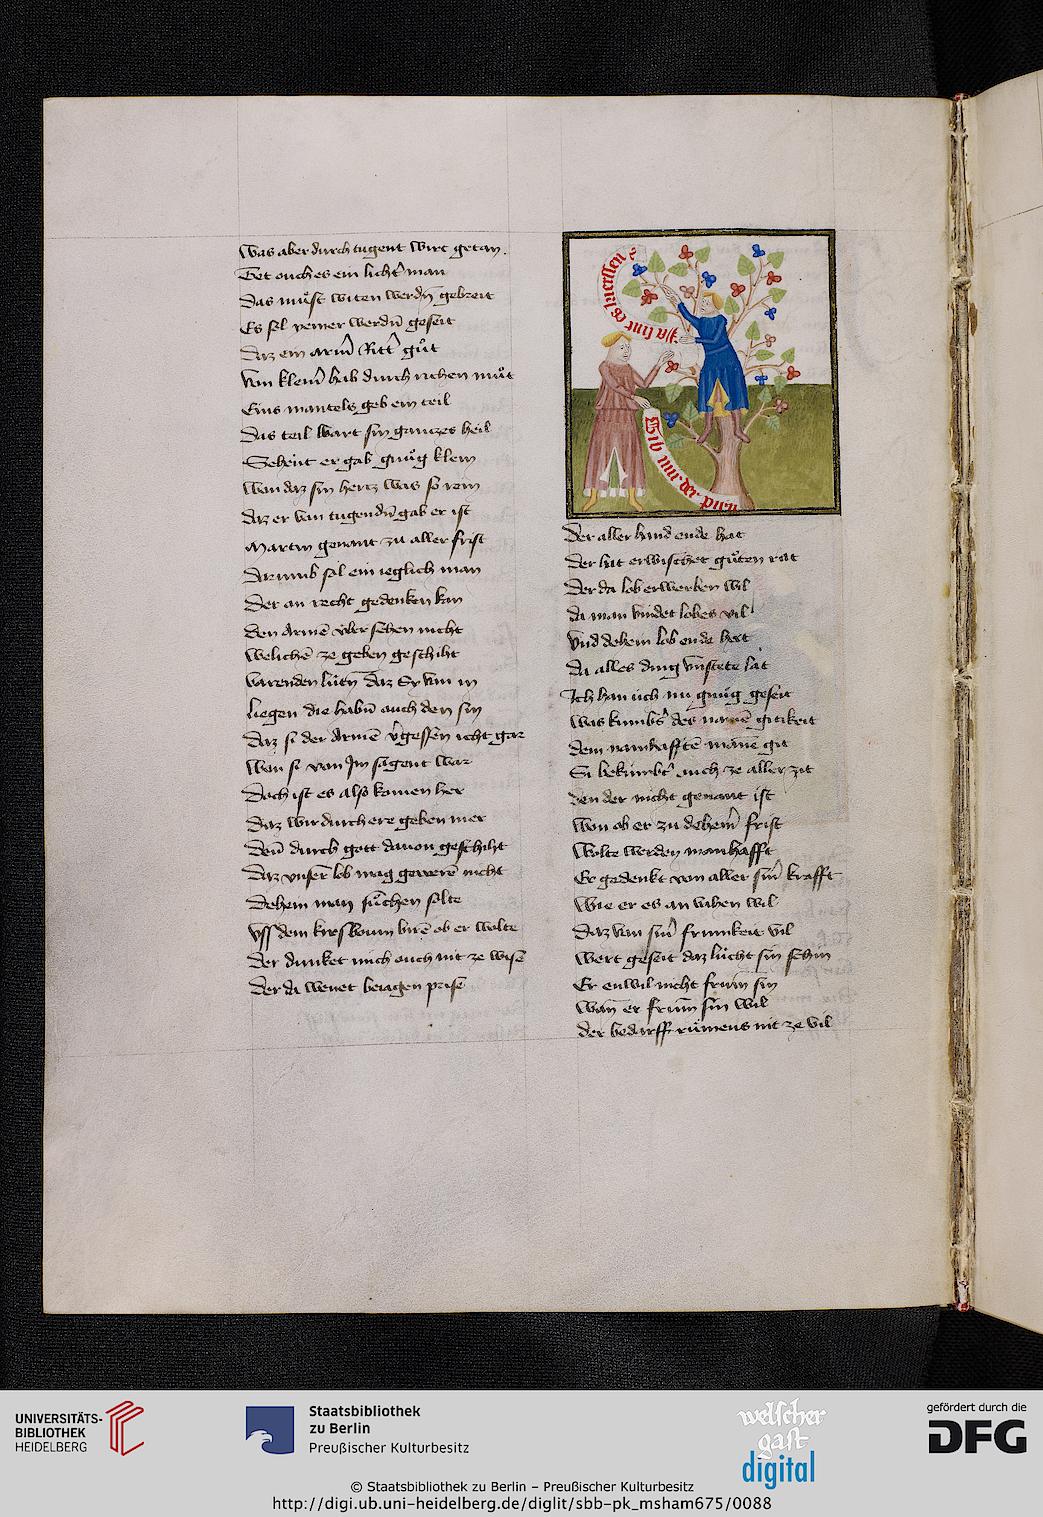 Was aber durch tugent wirt getan.
Tet ouch es ein licht̾ man
Das muͦst witen werdn̄ gebreit
Es sol verner werdn̄ geseit
Daz ein arm̄ Ritt̾ guͦt
Von klem̄ hab durch richen muͦt
Eins mantels geb ein teil
Das teil wart sin gantzes heil
er gab gnuͦg klein
Wan daz sin hertz was so rein
daz er van tugendn̄ gab er ist
Martin genant zu aller frist
Darumb sol ein ieglich man
Der an recht gedenken kan
den Armē vber sehen nicht
Welichē ze geben geschiht
Varenden lütn̄ daz Sy van in
liegen die habn̄ auch den sin
Daz si der Armē v̾gessen icht gar
Wan si van Jm sagent war
Doch ist es also komen her
Daz wir durch ere geben mer
Den̄ durch gott dauon geschiht
Daz vnser lob mag gewerē nicht
Dehein man suͦchen solte
Vss dem kirsboum birē ob er wolte
Der dunket mich ouch nit ze wisē
Der da wenet beiagen prisē
Ja sint es kuerssen
Gib mir der pirn
Der aller hand ende hat
der hat erwischet guͦten rat
Der da lob erwerben wil
da man vindet lobes vil
Vnd dehein lob ende het
Da alles ding vnstete lat
Ich han üch nu gnuͦg geseit
Was kumb̾s des namē gitikeit
dem namhafftē manē git
Si bekümb̾t ouch ze aller zit
den der nicht genant ist
Won ob er zu dehem̄ frist
Wolte werden namhafft
Er gedenkt von aller sin̄ krafft
Wie er es an vahen wil
Daz van sin̄ frumkeit vil
Wert geseit daz lücht sin schin
Er enwil nicht frum̄ sin
Wan̄ er frum̄ sin wil
der bedarff ruͤmens nit ze vil
UNIVERSITÄTS-
BIBLIOTHEK
HEIDELBERG
Staatsbibliothek
zu Berlin
Preußischer Kulturbesitz
welscher
gast
digital
gefördert durch die
DFG
© Staatsbibliothek zu Berlin – Preußischer Kulturbesitz
http://digi.ub.uni-heidelberg.de/diglit/sbb-pk_msham675/0088